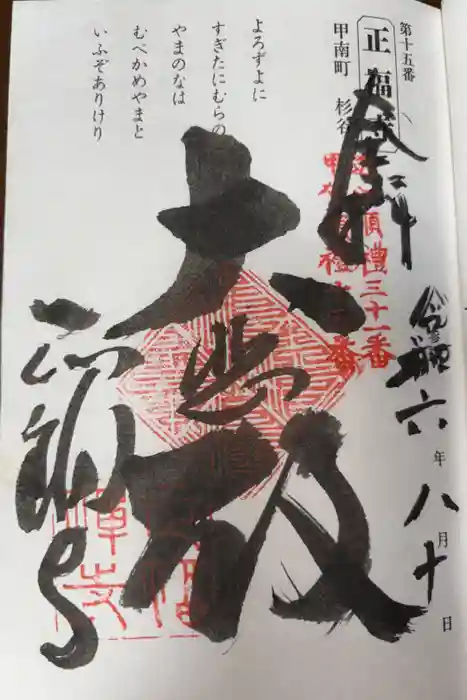 第十五番
正福寺
甲南町 杉谷
よろずよに
すぎたにむらの
やまのなは
むべかめやまと
いふぞありけり
奉拝
令和六年八月十日
大悲殿
正福寺